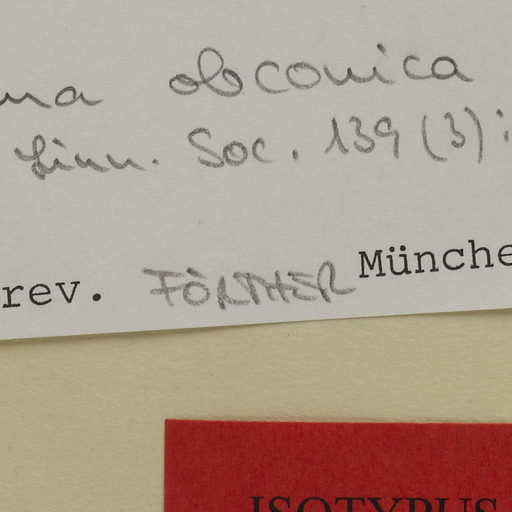 ma obconica
Linn. Soc. 139 (3):
rev. FÖRTHER Münche
ISOTYPUS